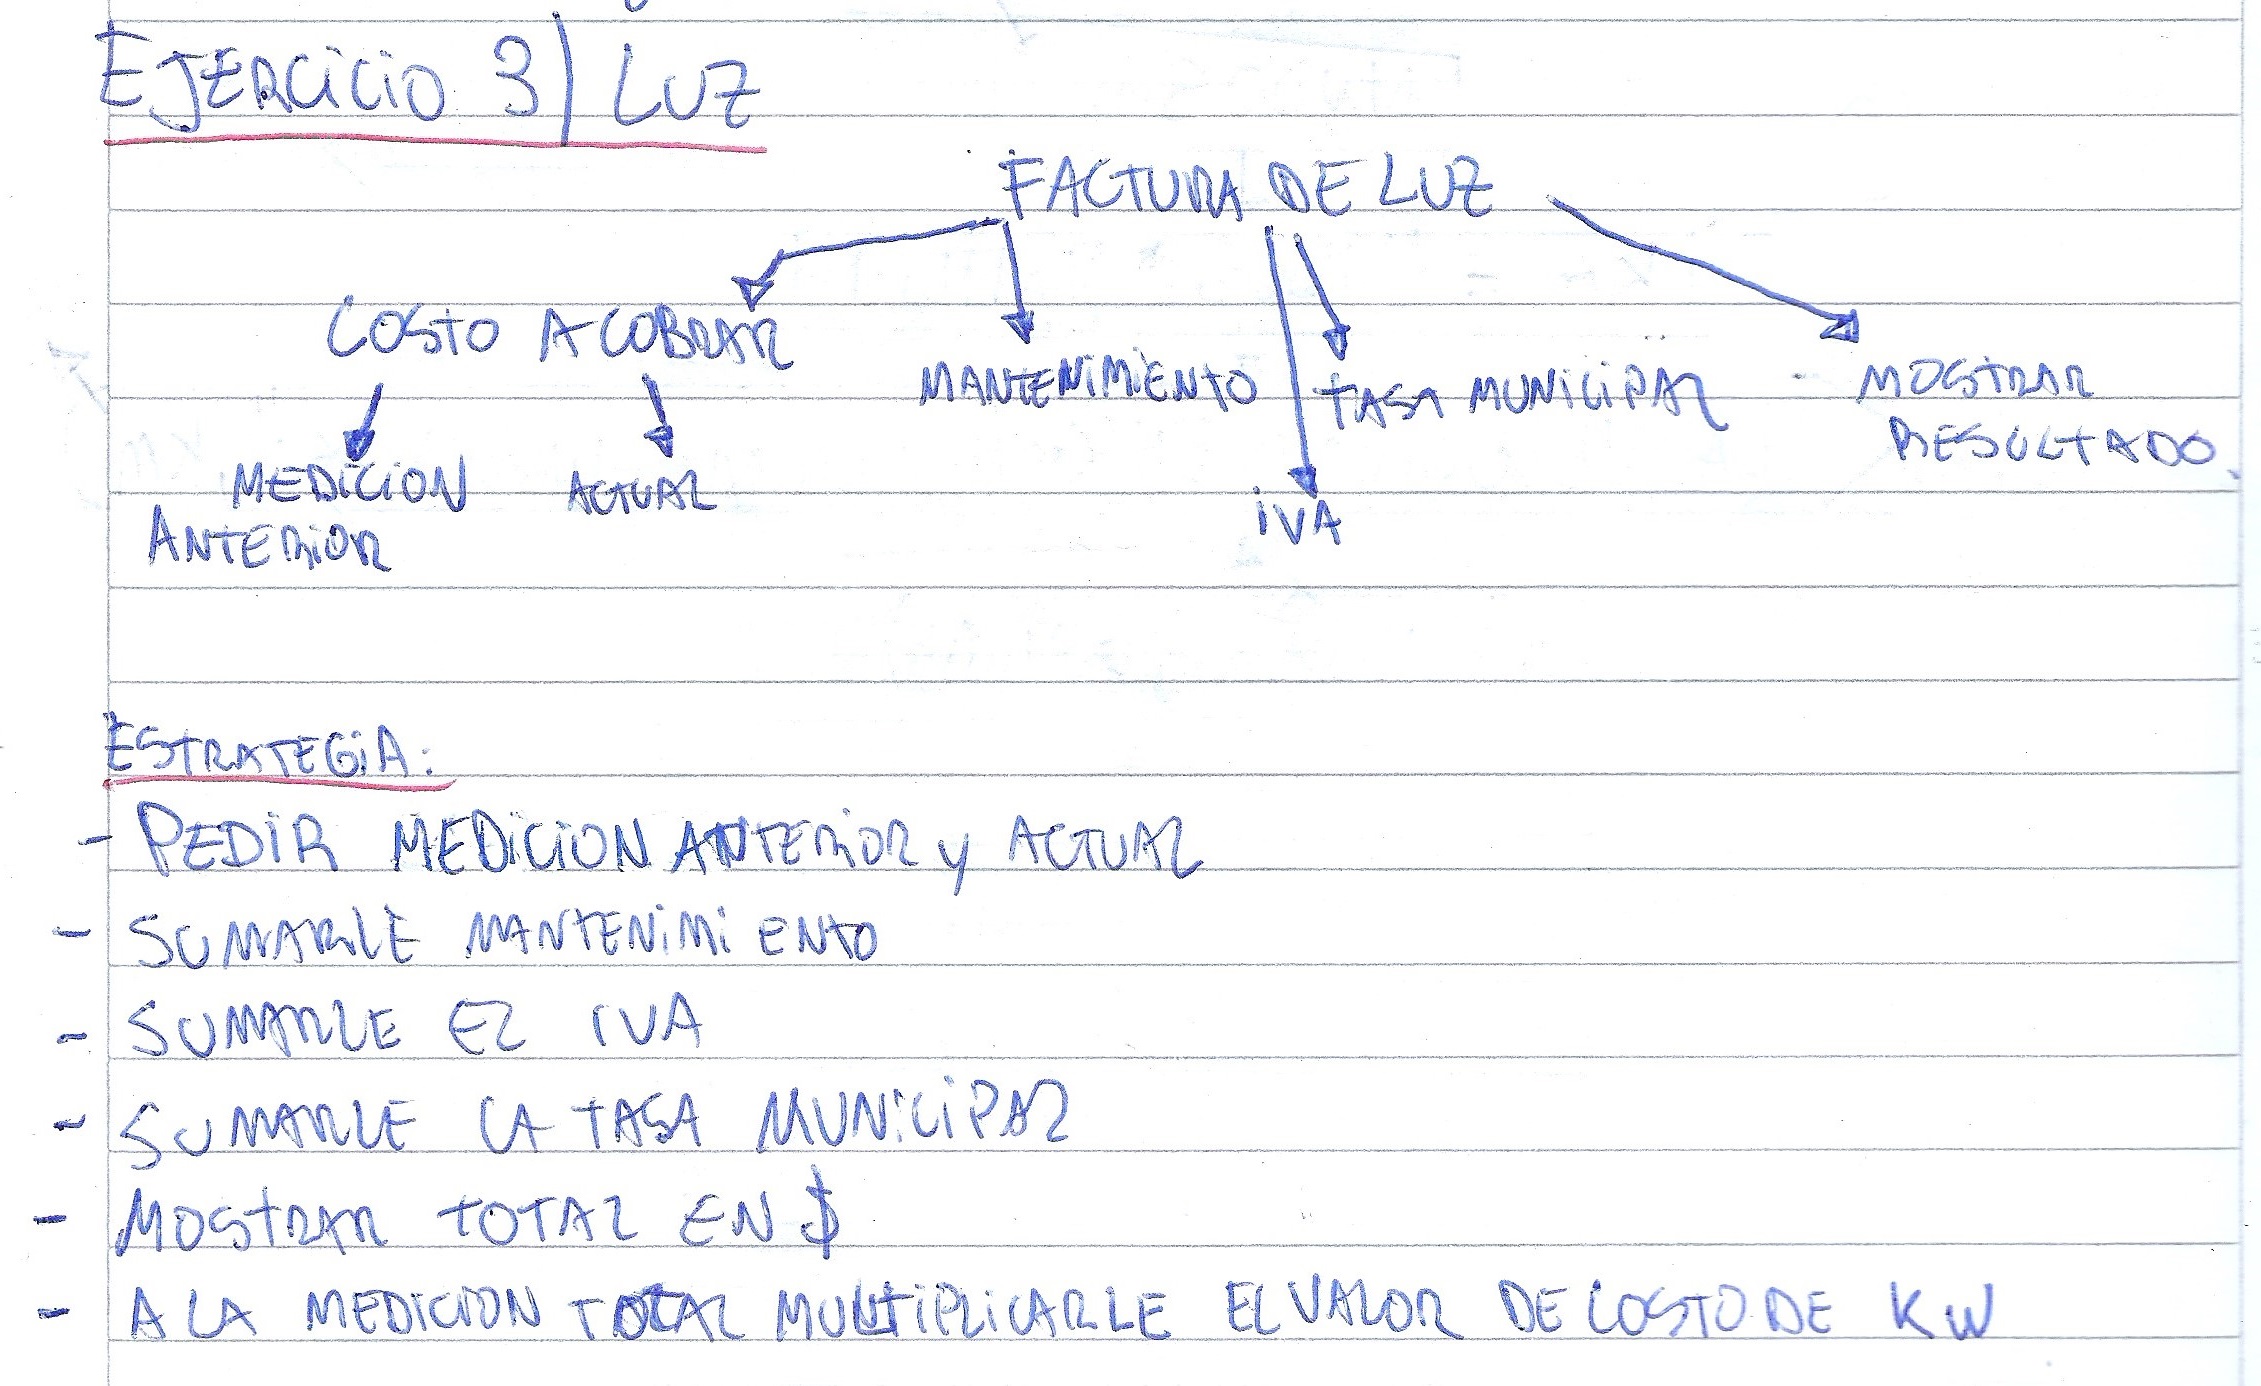 EJERCICIO 3) LUZ
FACTURA DE LUZ
COSTO A COBRAR
MANTENIMIENTO
TASA MUNICIPAL
MOSTRAR
RESULTADO.
MEDICION
ANTERIOR
ACTUAL
IVA
ESTRATEGIA:
- PEDIR MEDICION ANTERIOR Y ACTUAL
- SUMARLE MANTENIMIENTO
- SUMARLE EL IVA
- SUMARLE LA TASA MUNICIPAL
- MOSTRAR TOTAL EN $
- A LA MEDICION TOTAL MULTIPLICARLE EL VALOR DE COSTO DE KW